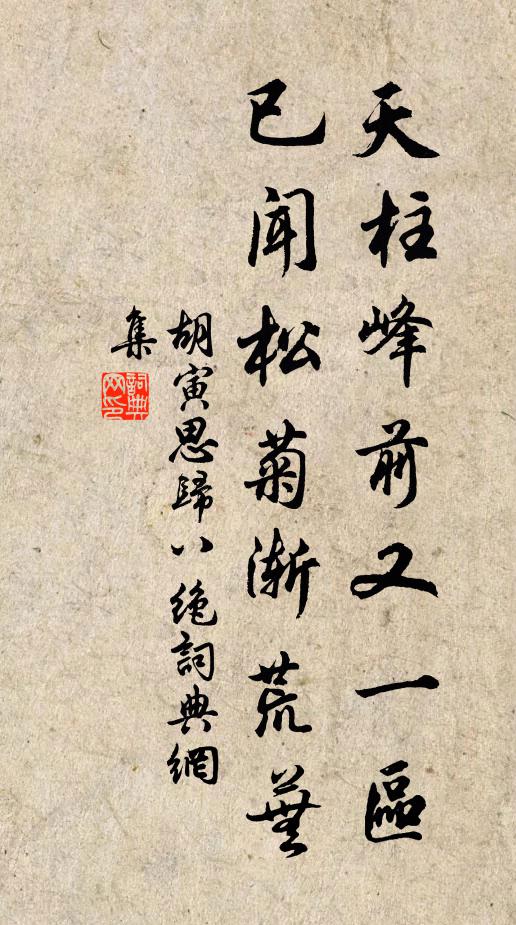 天柱峰前又一區
已聞松菊漸荒蕪
胡寅思歸八絶詞典網
集
詞典網印